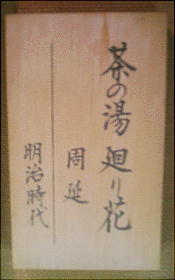 茶の湯 廻り花
周延
明治時代